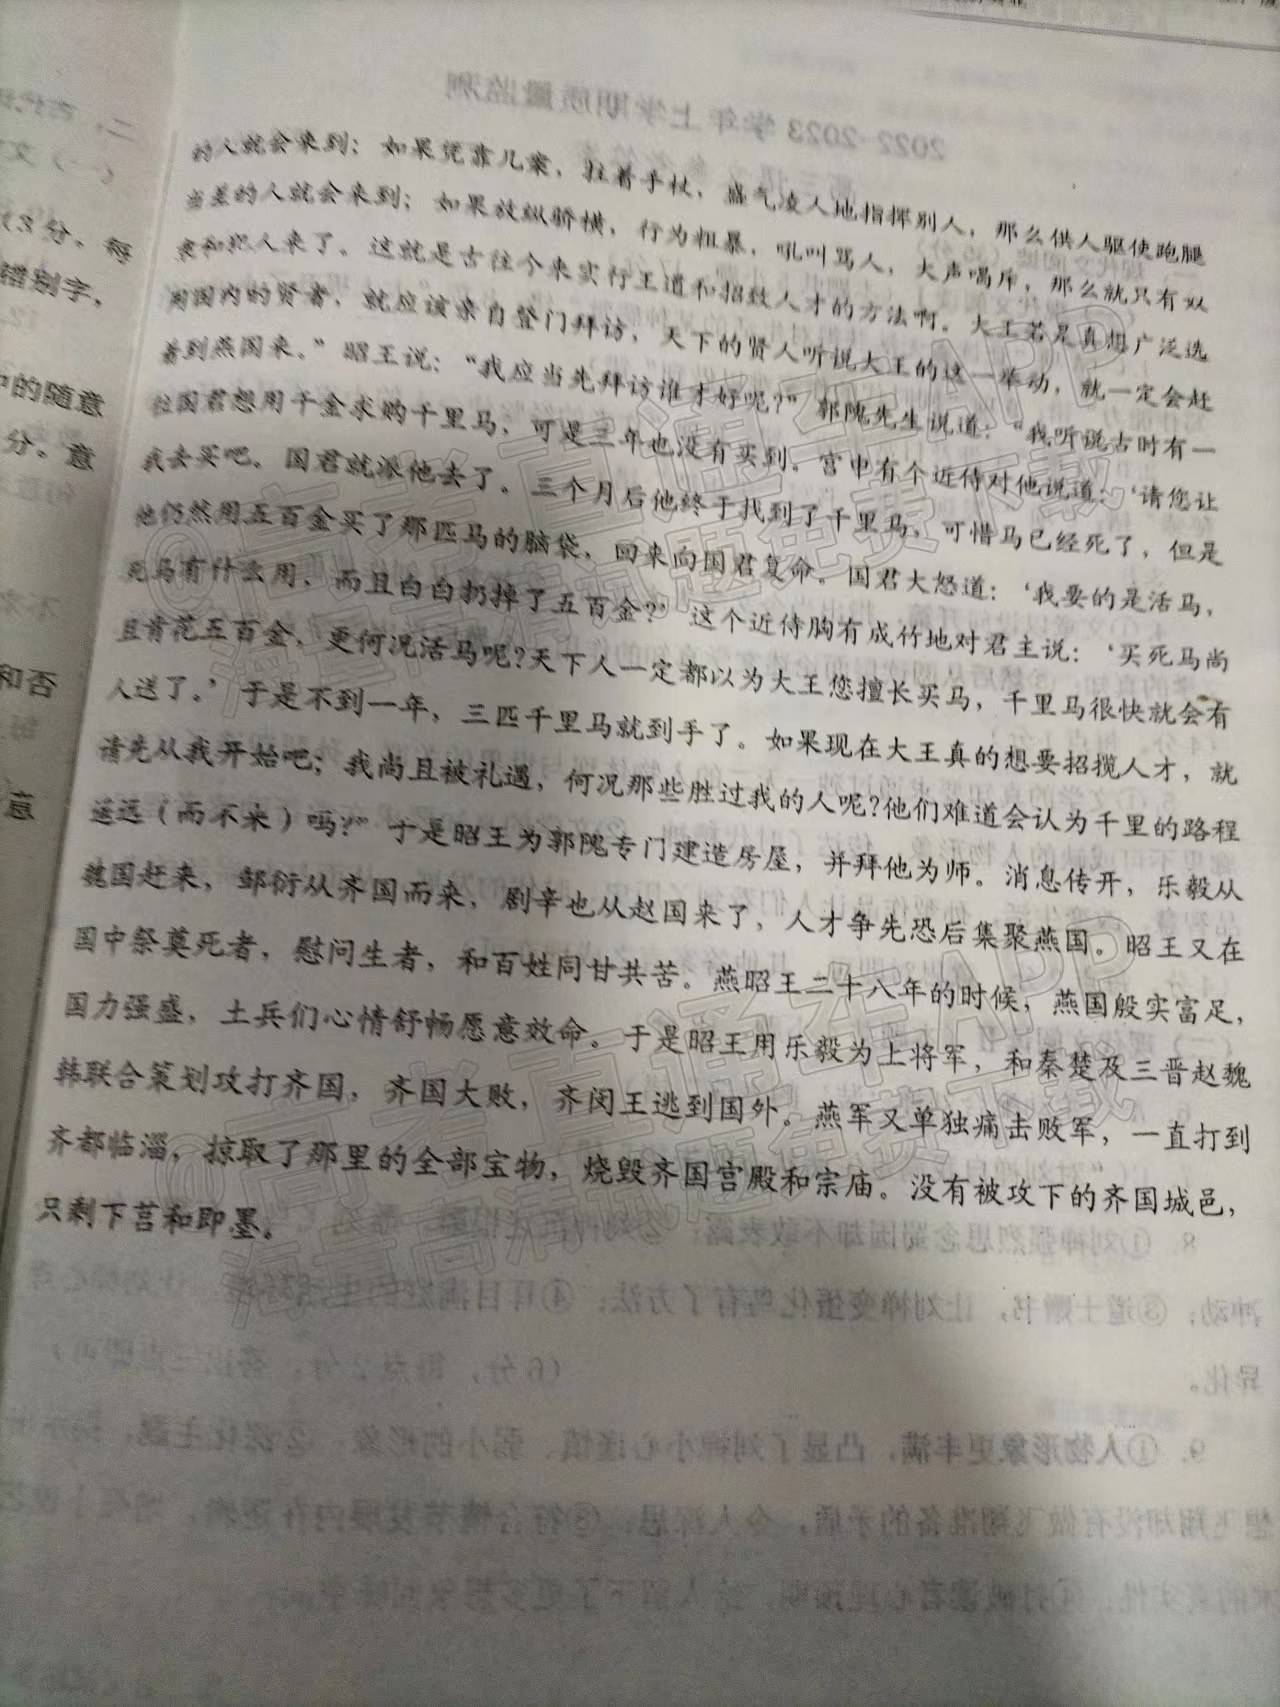 的人就会来到；如果凭靠几案，拄着手杖，盛气凌人地指挥别人，那么供人驱使跑腿
当差的人就会来到；如果放纵骄横，行为粗暴，吼叫骂人，大声喝斥，那么就只有奴
隶和犯人来了。这就是古往今来实行王道和招致人才的方法啊。大王若是真想广泛选
用国内的贤者，就应该亲自登门拜访，天下的贤人听说大王的这一举动，就一定会赶
着到燕国来。”昭王说：“我应当先拜访谁才好呢?”郭隗先生说道：“我听说古时有一
位国君想用千金求购千里马，可是三年也没有买到。宫中有个近侍对他说道：‘请您让
我去买吧。国君就派他去了。三个月后他终于找到了千里马，可惜马已经死了，但是
他仍然用五百金买了那匹马的脑袋，回来向国君复命。国君大怒道：‘我要的是活马，
死马有什么用，而且白白扔掉了五百金?’这个近侍胸有成竹地对君主说：‘买死马尚
且肯花五百金，更何况活马呢?天下人一定都以为大王您擅长买马，千里马很快就会有
人送了。’于是不到一年，三匹千里马就到手了。如果现在大王真的想要招揽人才，就
请先从我开始吧；我尚且被礼遇，何况那些胜过我的人呢?他们难道会认为千里的路程
遥远（而不来）吗?”于是昭王为郭隗专门建造房屋，并拜他为师。消息传开，乐毅从
魏国赶来，邹衍从齐国而来，剧辛也从赵国来了，人才争先恐后集聚燕国。昭王又在
国中祭奠死者，慰问生者，和百姓同甘共苦。燕昭王二十八年的时候，燕国殷实富足，
国力强盛，士兵们心情舒畅愿意效命。于是昭王用乐毅为上将军，和秦楚及三晋赵魏
韩联合策划攻打齐国，齐国大败，齐闵王逃到国外。燕军又单独痛击败军，一直打到
齐都临淄，掠取了那里的全部宝物，烧毁齐国宫殿和宗庙。没有被攻下的齐国城邑，
只剩下莒和即墨。
3 分，每
错别字，
中的随意
分。意
和否
意
@高考直通车APP
海量高清试题免费下载
@高考直通车APP
海量高清试题免费下载